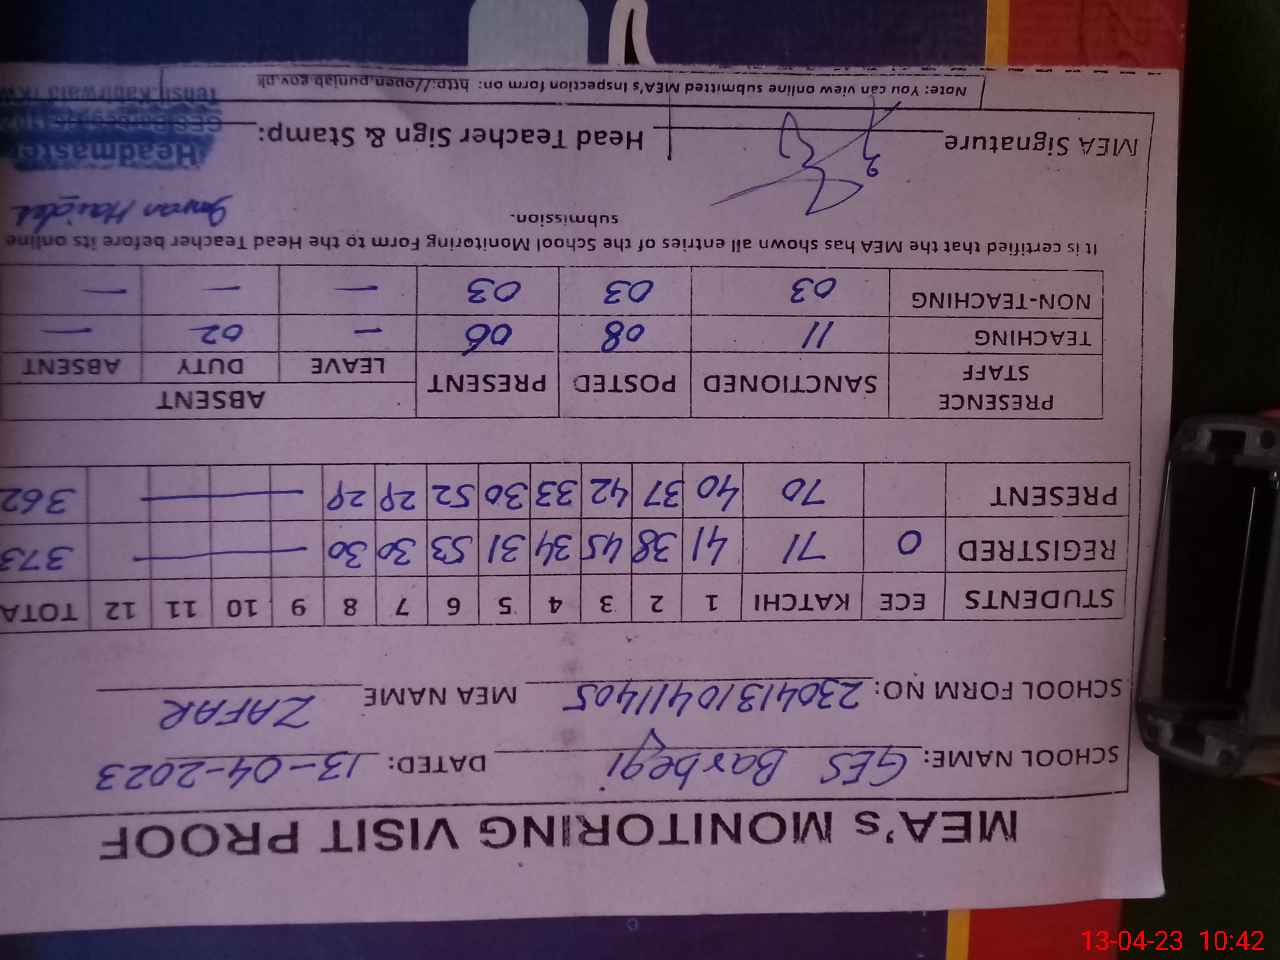 MEA's MONITORING VISIT PROOF
SCHOOL NAME: GES Barbegi DATED: 13-04-2023
SCHOOL FORM NO: 23041310411405 MEA NAME ZAFAR
STUDENTS ECE KATCHI 1 2 3 4 5 6 7 8 9 10 11 12 TOTA
REGISTRED 0 71 41 38 45 34 31 53 30 30 — 373
PRESENT 70 40 37 42 33 30 52 29 29 — 362
PRESENCE STAFF SANCTIONED POSTED PRESENT ABSENT
LEAVE DUTY ABSENT
TEACHING 11 08 06 — 02 —
NON-TEACHING 03 03 03 — — —
It is certified that the MEA has shown all entries of the School Monitoring Form to the Head Teacher before its online
submission.
MEA Signature Head Teacher Sign & Stamp:
Headmaster
Note: You can view online submitted MEA's Inspection form on: http://open.punjab.gov.pk
13-04-23 10:42